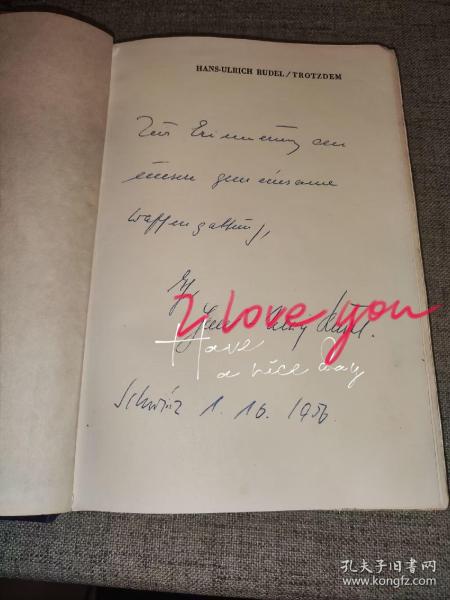 HANS-ULRICH RUDEL / TROTZDEM
Zur Erinnerung an
unsere gemeinsame
Waffengattung,
I love you
Have
a nice day
1. 10. 1956
孔夫子旧书网
www.kongfz.com